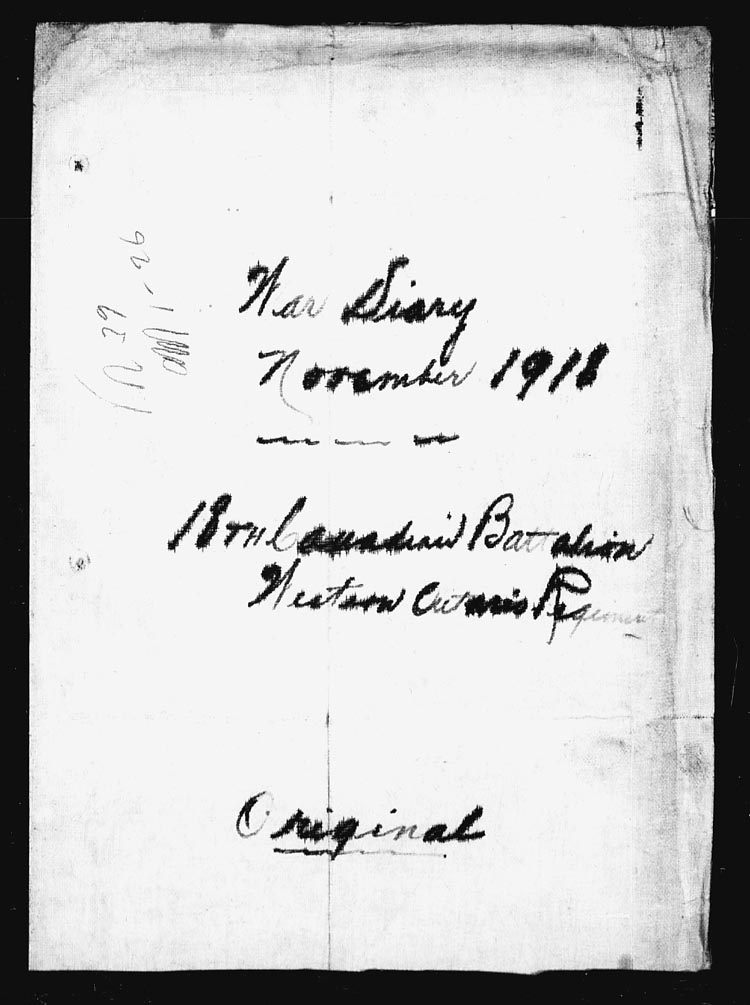 War Diary
November 1918
18TH Canadian Battalion
Western Ontario Regiment
Original